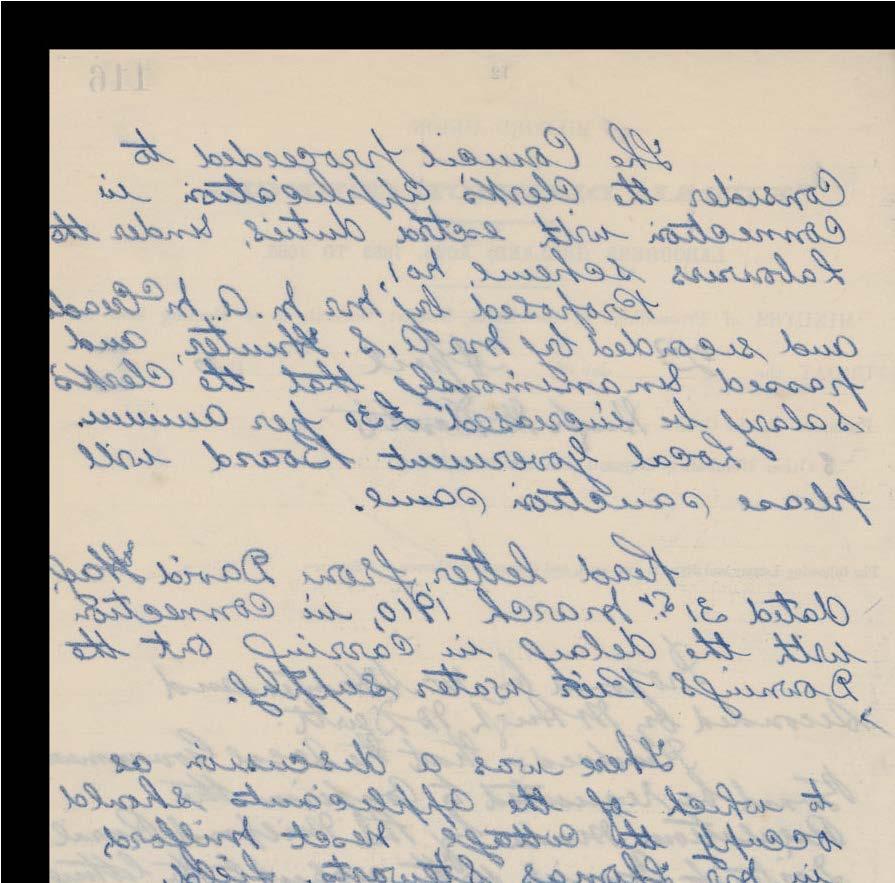 116
12
The Council proceeded to
Consider the Clerk's application in
Connection with extra duties, under the
Labourers Scheme, No 1
Proposed by Mr
and seconded by Mr A. S. Hunter, and
passed unanimously that the Clerk's
salary be increased £30 per annum.
Local Government Board will
please sanction same.
Read letter from David
dated 31st March 1910, in Connection
with the delay in Carrying out the
Downings Pier water supply.
There was a discussion as
to which of the applicants should
occupy the cottage next Milford,
in Mr Thomas Stewarts field.